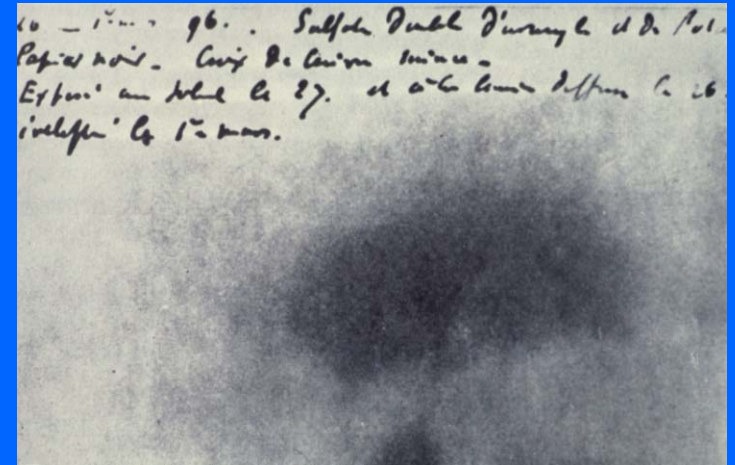 96. Sulfate Double d'uranyle et de
Papier noir. Croix de Cuivre mince.
Exposé au soleil le 27. et à la lumière diffuse le 26.
développé le 1er mars.